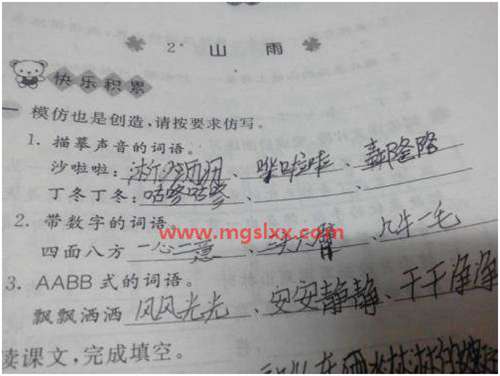 2* 山 雨
快乐积累
一 模仿也是创造,请按要求仿写。
1. 描摹声音的词语。
沙啦啦: 、哗啦啦、轰隆隆
丁冬丁冬:咕咚咕咚、
2. 带数字的词语
www.mgslxx.com
四面八方 一心二意、三头六臂、九牛一毛
3. AABB 式的词语。
飘飘洒洒 风风光光、安安静静、干干净净
读课文,完成填空。